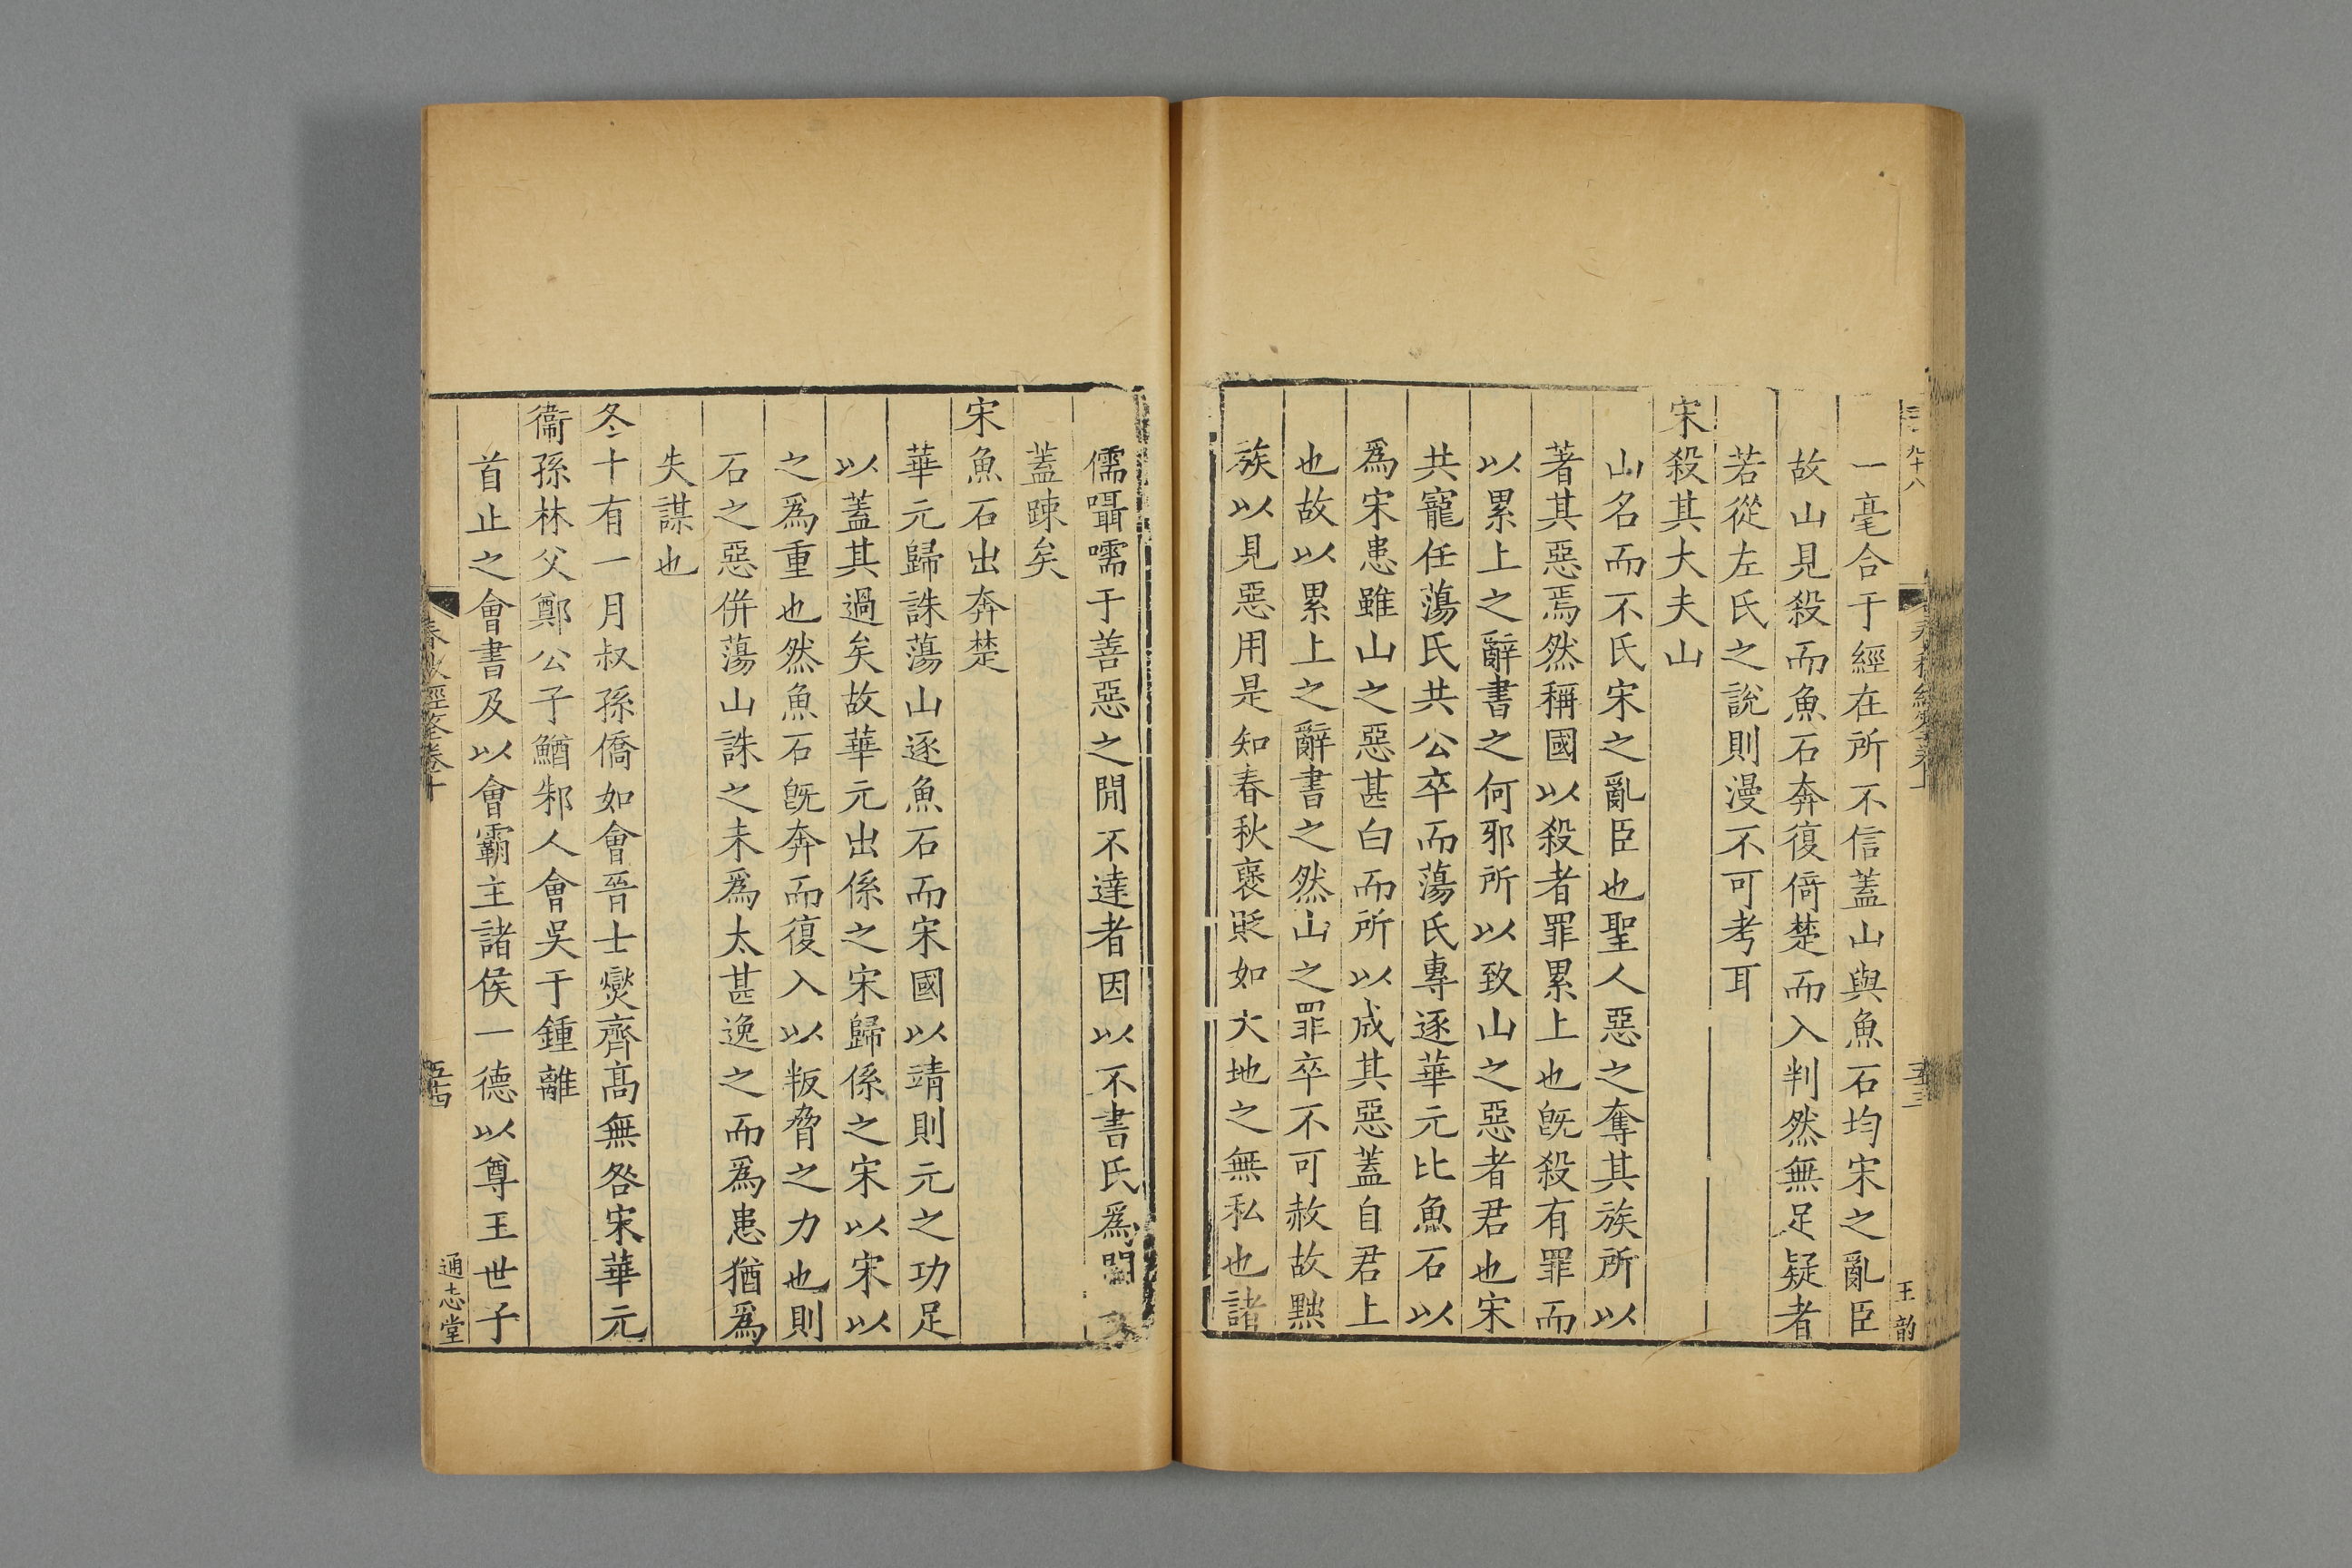 一毫合于經在所不信蓋山與魚石均宋之亂臣
故山見殺而魚石奔復倚楚而入判然無足疑者
若從左氏之說則漫不可考耳
宋殺其大夫山
山名而不氏宋之亂臣也聖人惡之奪其族所以
著其惡焉然稱國以殺者罪累上也旣殺有罪而
以累上之辭書之何邪所以致山之惡者君也宋
共寵任蕩氏共公卒而蕩氏專逐華元比魚石以
爲宋患雖山之惡甚白而所以成其惡蓋自君上
也故以累上之辭書之然山之罪卒不可赦故黜
族以見惡用是知春秋褒貶如天地之無私也諸
王韵
儒囁嚅于善惡之閒不達者因以不書氏爲闕文
蓋踈矣
宋魚石出奔楚
華元歸誅蕩山逐魚石而宋國以靖則元之功足
以蓋其過矣故華元出係之宋歸係之宋以宋以
之爲重也然魚石旣奔而復入以叛脅之力也則
石之惡倂蕩山誅之未爲太甚逸之而爲患猶爲
失謀也
冬十有一月叔孫僑如會晉士燮齊高無咎宋華元
衞孫林父鄭公子鰌邾人會吳于鍾離
首止之會書及以會霸主諸侯一德以尊王世子
春秋經筌卷十
五十四
通志堂